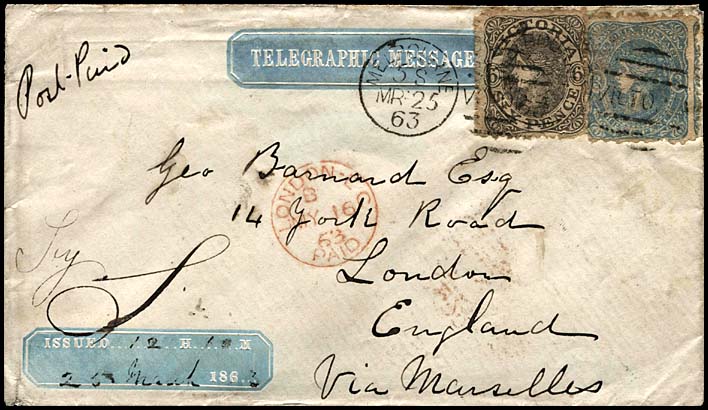 Post-Paid
TELEGRAPHIC MESSAGE
MELBOURNE
MR 25
63
VICTORIA
6 6
SIX PENCE
Geo Barnard Esq
LONDON E.C
16
63
PAID
14 York Road
London
England
ISSUED 12 H. 10 M
25 March 1863
Via Marselles